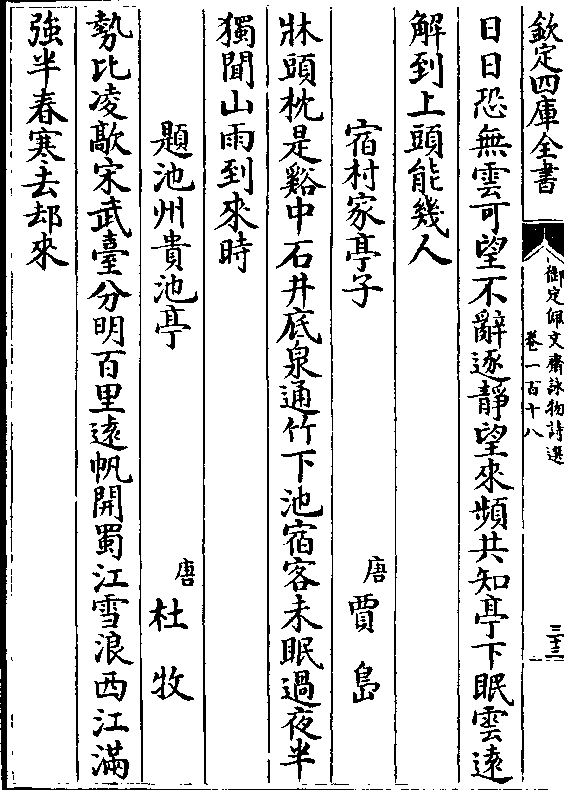 欽定四庫全書
御定佩文齋詠物詩選
卷一百十八
三十三
日日恐無雲可望不辭逐靜望來頻共知亭下眠雲遠
解到上頭能幾人
宿村家亭子
唐
賈島
牀頭枕是谿中石井底泉通竹下池宿客未眠過夜半
獨聞山雨到來時
題池州貴池亭
唐
杜牧
勢比凌歊宋武臺分明百里遠帆開蜀江雪浪西江滿
強半春寒去却來